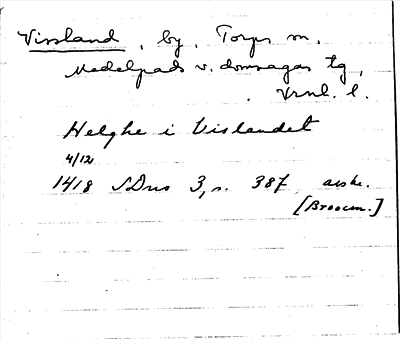 Vissland, by, Torps sn,
Medelpads v. domsagas tg,
Vrnl. l.
Helghe i Vislandet
4/12
1418 SDns 3, s. 387 avskr.
[Broocm.]